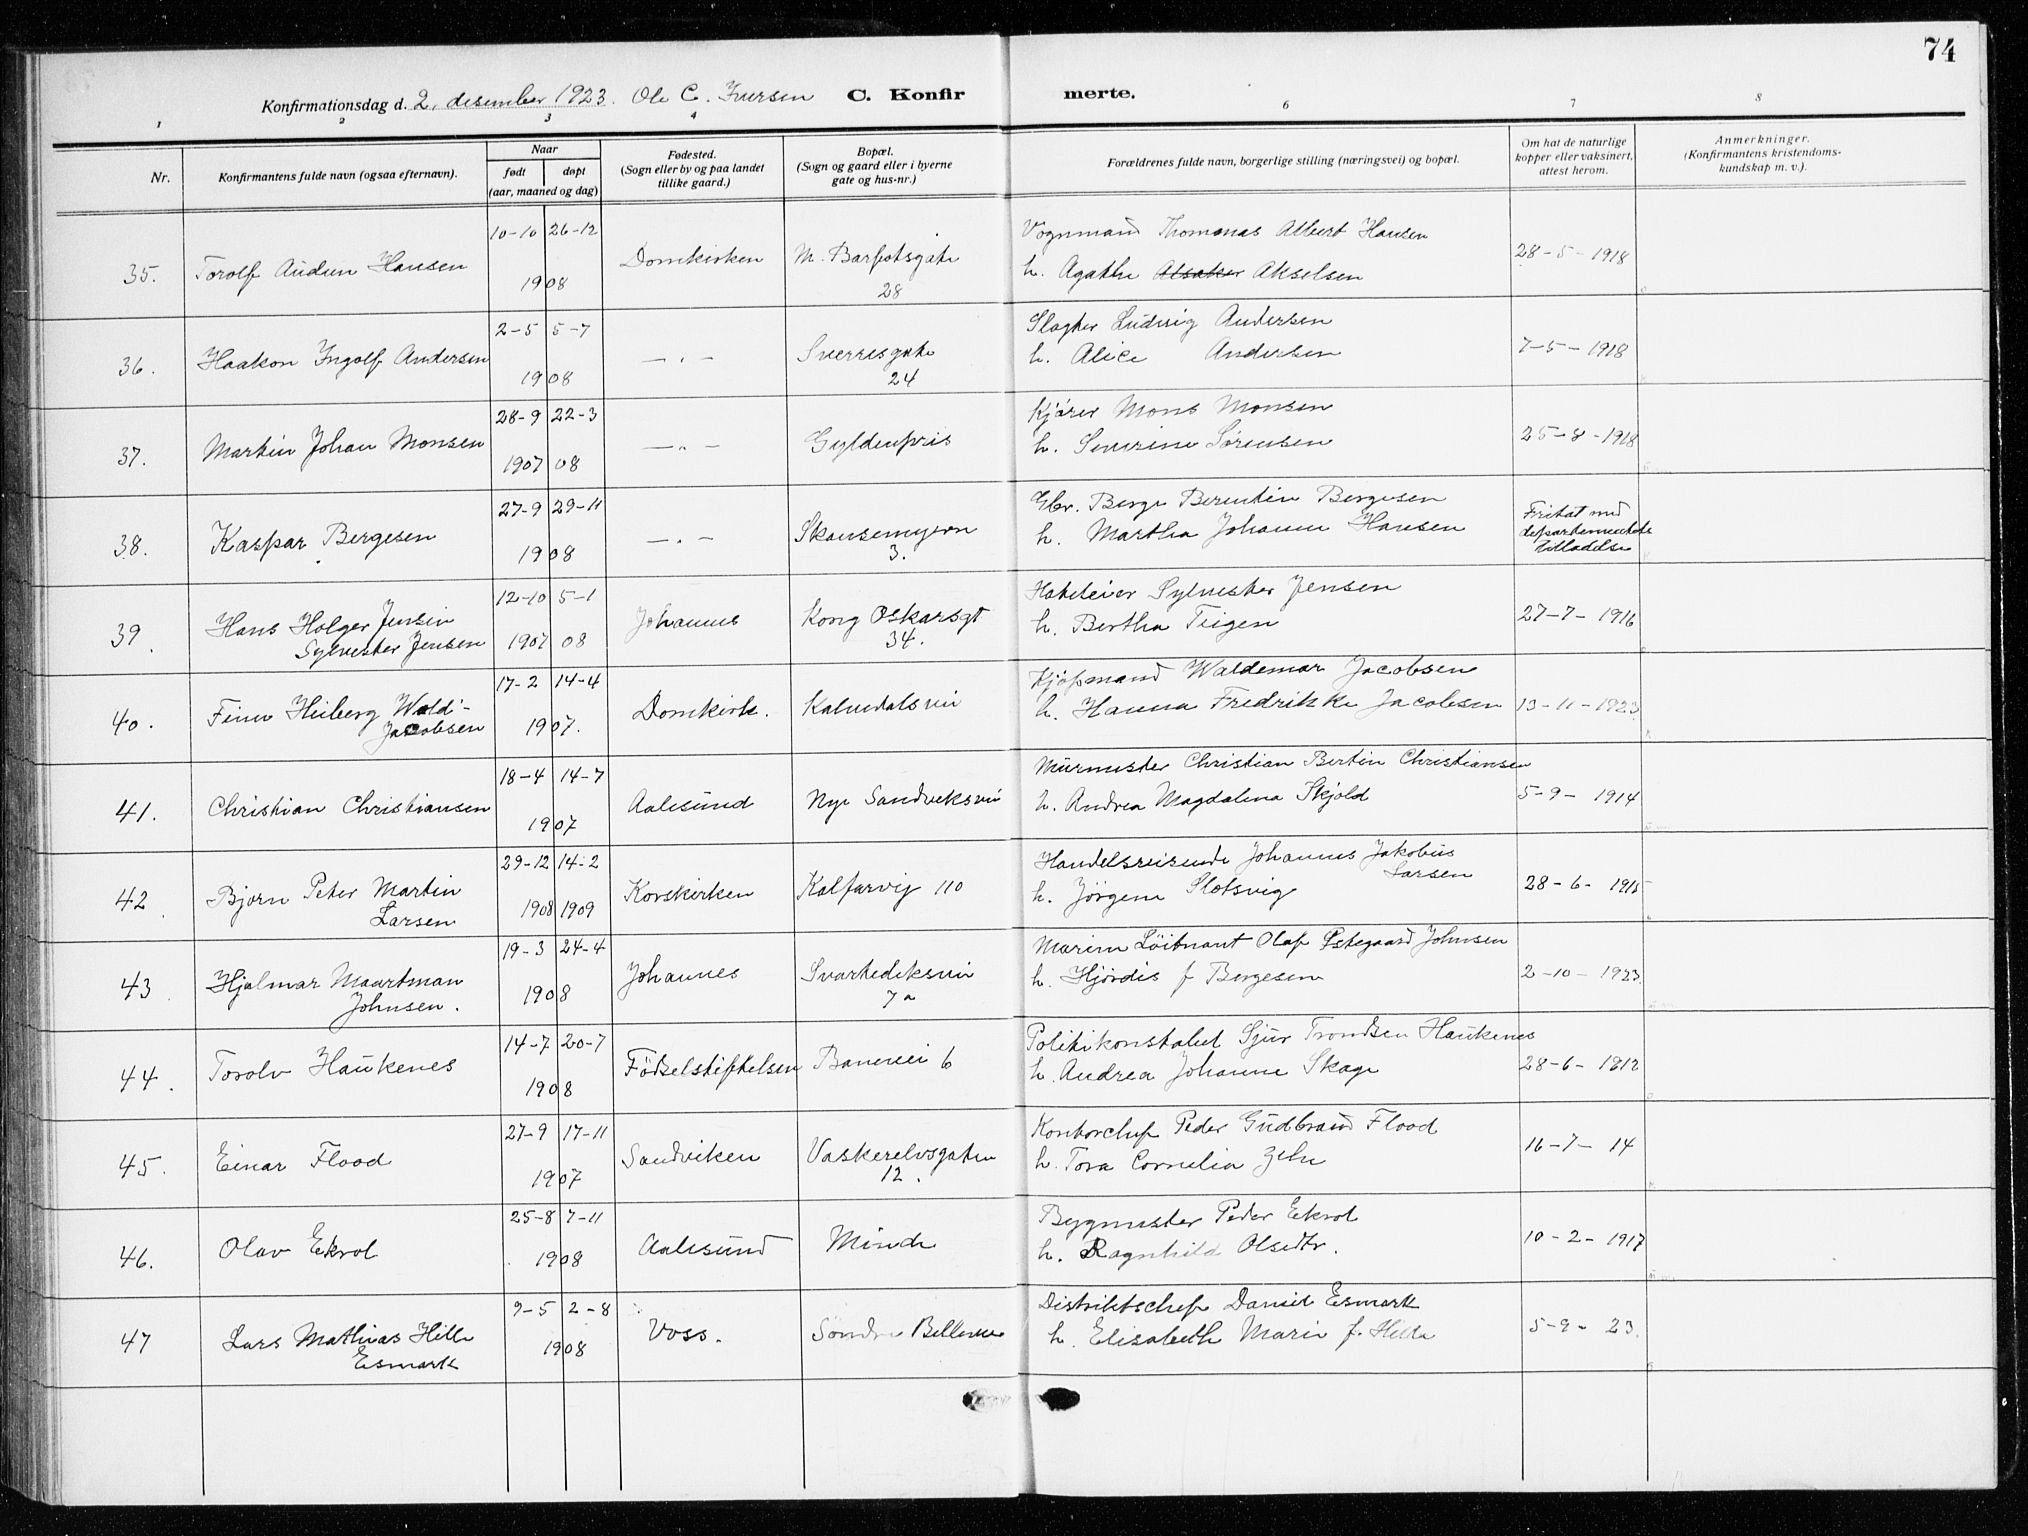 74
Konfirmationsdag d. 2. desember 1923. Ole C. Iversen C. Konfirmerte.
1 2 3 4 6 7 8
Nr.
Konfirmantens fulde navn (ogsaa efternavn).
Naar
født døpt
(aar, maaned og dag)
Fødested.
(Sogn eller by og paa landet
tillike gaard.)
Bopæl.
(Sogn og gaard eller i byerne
gate og hus-nr.)
Forældrenes fulde navn, borgerlige stilling (næringsvei) og bopæl.
Om hat de naturlige
kopper eller vaksinert,
attest herom.
Anmerkninger.
(Konfirmantens kristendoms-
kundskap m. v.).
10-10 26-12 Vognmand Thomanas Albert Hansen
35. Torolf Audun Hansen Domkirken M. Barfotsgate 28-5-1918
1908 28 h. Agathe Alsaker Akselsen
2-5 5-7 Slagter Ludvig Andersen
36. Haakon Ingolf Andersen — „ — Sverresgate 7-5-1918
1908 24 h. Alice Andersen
28-9 22-3 Kjører Mons Monsen
37. Martin Johan Monsen — „ — Gyldenpris 25-8-1918
1907 08 h. Severine Sørensen
27-9 29-11 Børge Berentin Bergesen
38. Kaspar Bergesen — „ — Skansemyren Fritat med
1908 3. h. Martha Johanne Hansen departementets
tilladelse
12-10 5-1 Hoteleier Sylvester Jensen
39. Hans Holger Jensen Johannes Kong Oskarsgt 27-7-1916
Sylvester Jensen 1907 08 34. h. Bertha Teigen
17-2 14-4 Kjøpmand Waldemar Jacobsen
40. Finn Heiberg Wald- Domkirk. Kalvedalsvei
Jacobsen 1907. h. Hanna Fredrikke Jacobsen 13-11-1923
18-4 14-7 Murmester Christian Bertin Christiansen
41. Christian Christiansen Aalesund Nye Sandviksvei 5-9-1914
1907 h. Andrea Magdalena Skjold
29-12 14-2 Handelsreisende Johannes Jakobus
Larsen
42 Bjørn Peter Martin Korskirken Kalfarvei 110 28-6-1915
Larsen 1908 1909 h. Jørgene Slotsvig
19-3 24-4 Marine Løitnant Olaf Østegaard Johnsen
43. Hjalmar Maartman Johannes Svartediksvei 2-10-1923.
Johnsen. 1908 7a h. Hjørdis f Bergesen
14-7 20-7 Politikonstabel Sjur Trondsen Haukenes
44. Torolv Haukenes Fødselstiftelsen Banevei 6 28-6-1912
1908 h. Andrea Johanne Skage
27-9 17-11 Kontorchef Peder Gudbrand Flood
45. Einar Flood Sandviken Vaskerelvsgaten 16-7-14
1907 12. h. Tora Cornelia
25-8 7-11 Bygmester Peder Ekrol
46. Olav Ekrol Aalesund Minde 10-2-1917
1908 h. Ragnhild Olsedtr.
9-5 2-8 Distriktschef Daniel Esmark
47 Lars Mathias Hille Voss. Søndre 5-9-23.
Esmark 1908 h. Elisabeth Marie f. Hille